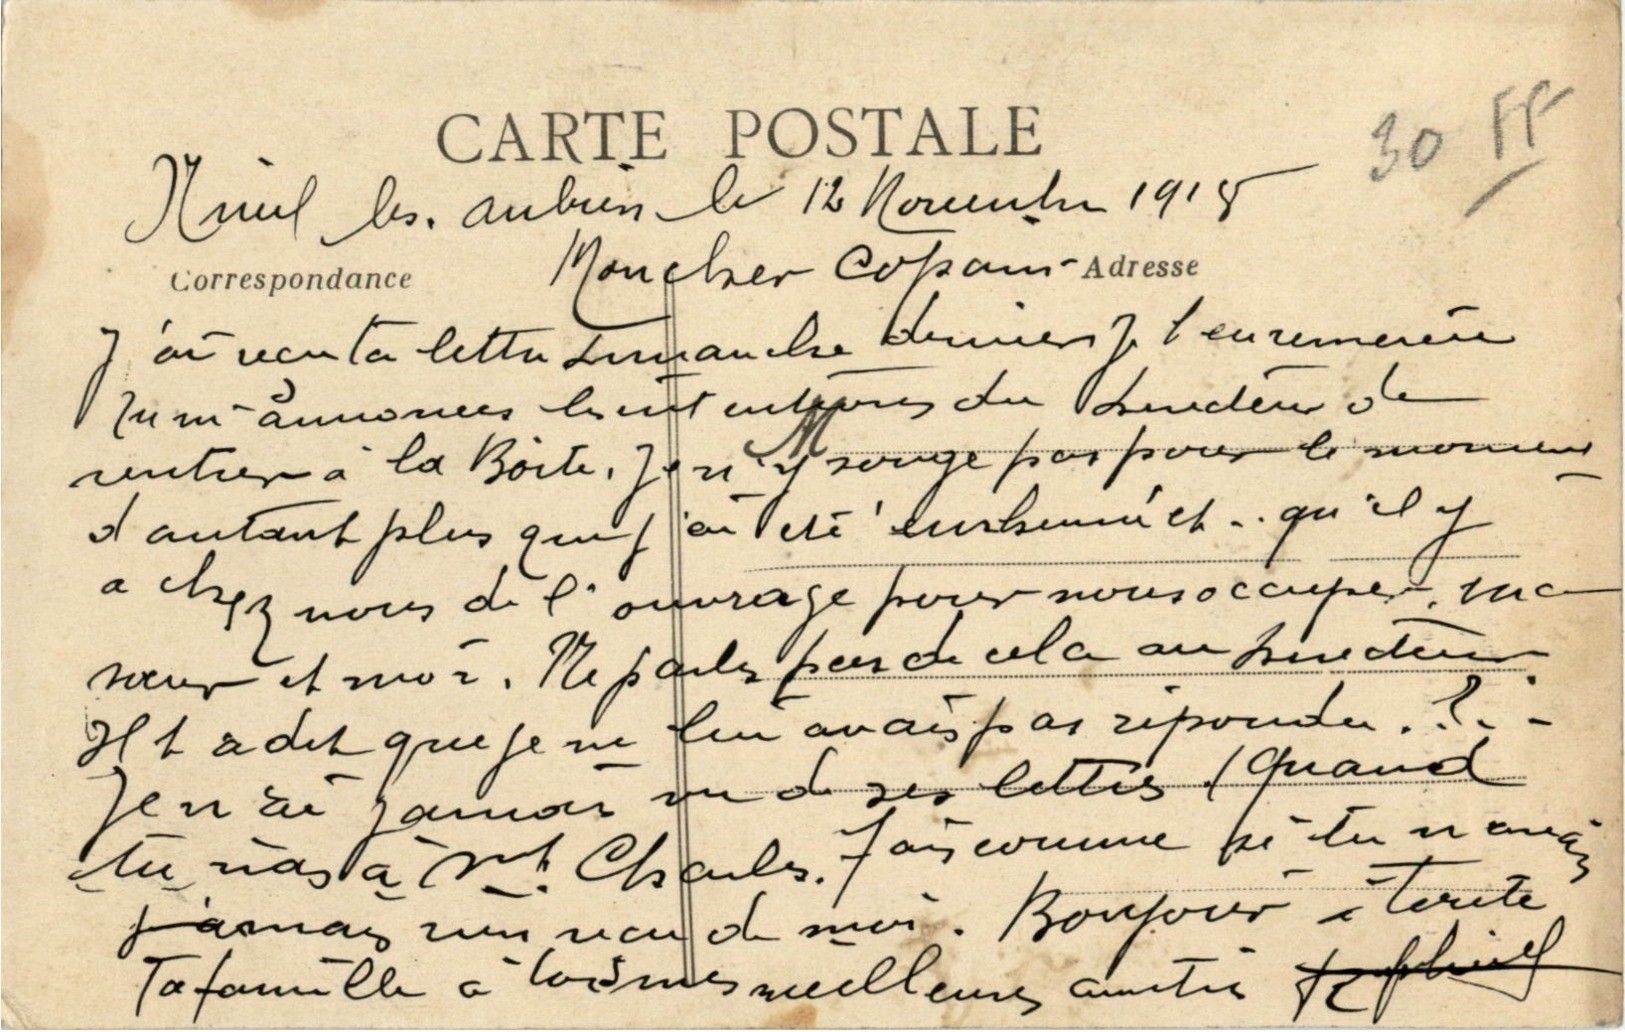 CARTE POSTALE
30 FF
Nieul les. aubiers le 12 Novembre 1918
Correspondance
Mon cher Copain
Adresse
J'ai recu ta lettre dimanche dernier Je t'en remercie
Tu m'annonces les intentions du directeur de
rentrer à la Boite. Je n'y songe pas pour le moment
d'autant plus que j'ai été et .. qu'il y
a chez nous de l'ouvrage pour nous occuper, ma
sœur et moi. Ne parles pas de cela au directeur
Il t a dit que je ne lui avais pas répondu. ?. -
Je n'ai jamais vu de ses lettres. (Quand
tu iras à Mt. Charles. Fais comme si tu n'avais
jamais rien recu de moi. Bonjour à toute
Ta famille à toi mes meilleures amitiés